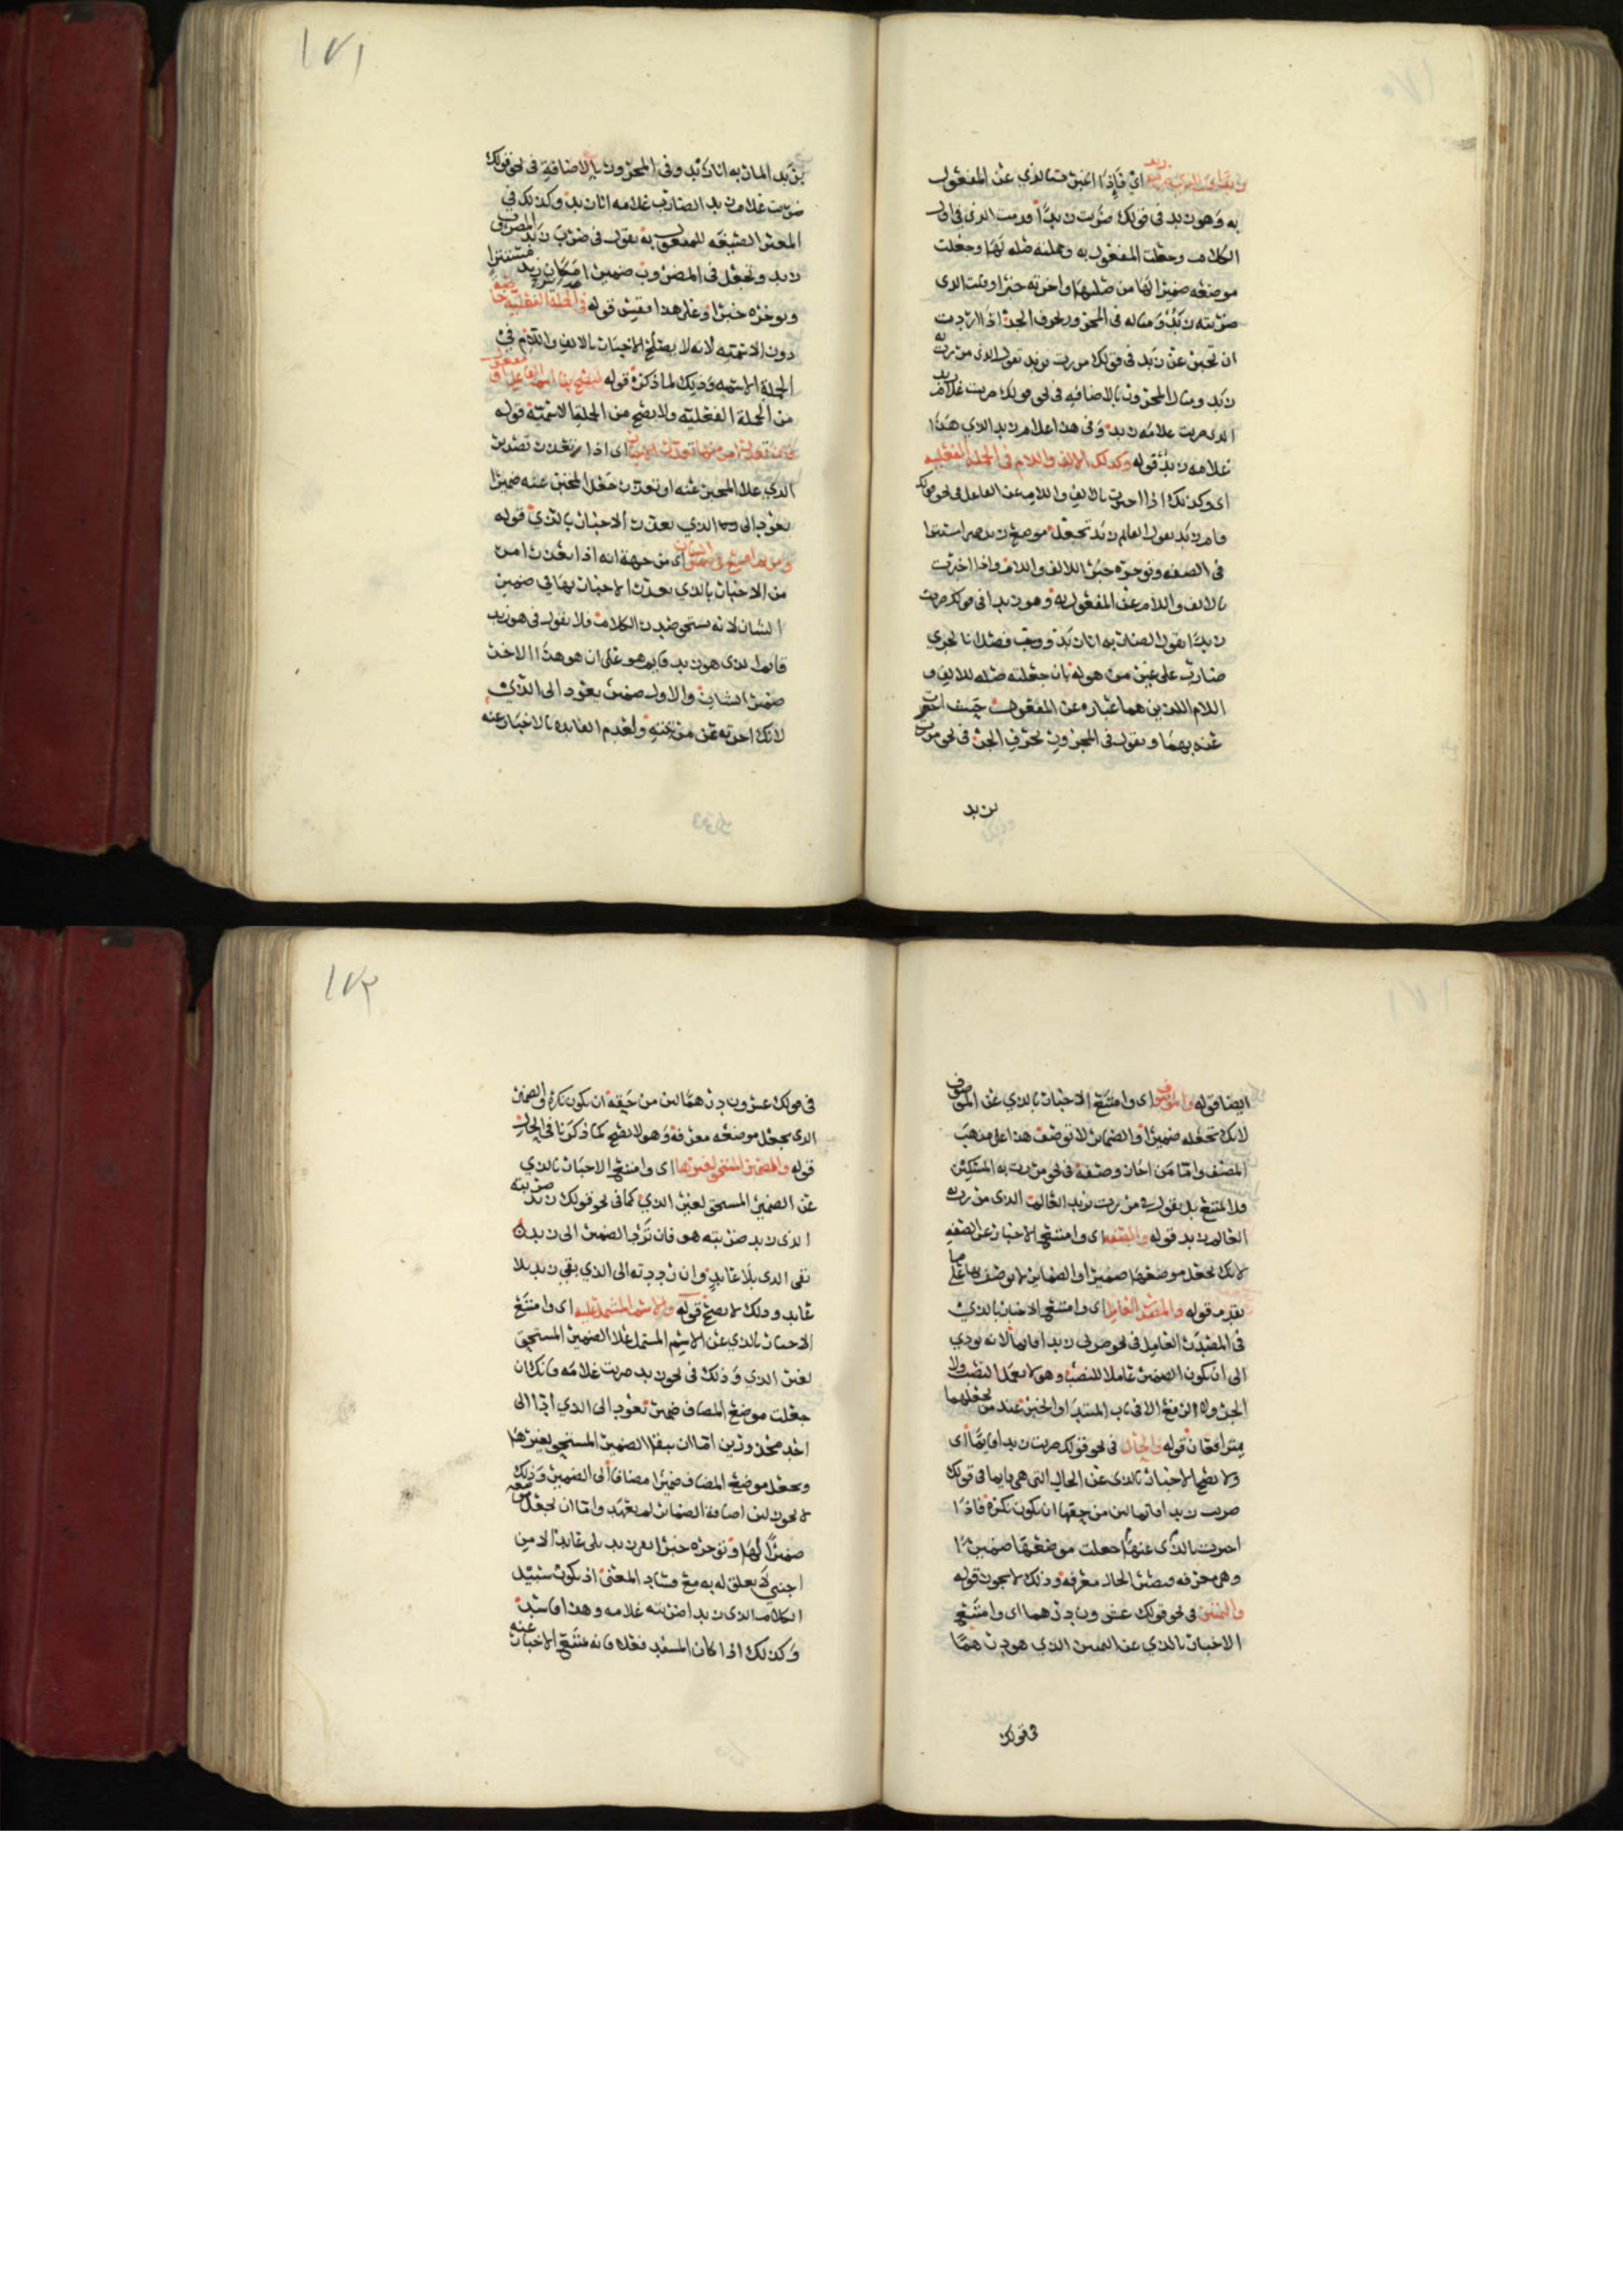 اي فإذا اخبرت بالذي عن المفعول
به وهو زيد في قولك ضربت زيدا قدمت الذي في اول
الكلام وجعلت المفعول به وجملته صله لها وجعلت
موضعه ضميرا لها من صلتها واخرته خبرا وقلت الذي
ضربته زيد ومثاله في المجرور بحرف الجر اذا اردت
ان تخبر عن زيد في قولك مررت بزيد تقول الذي مررت به
زيد ومثال المجرور بالاضافه في نحو قولك ضربت غلام زيد
الذي ضربت غلامه زيد وفي هذا غلام زيد الذي هذا
غلامه زيد قوله وكذلك الالف واللام في الجمله الفعليه
اي وكذلك اذا اخبرت بالالف واللام عن الفاعل في نحو قولك
قام زيد تقول القايم زيد تجعل موضع زيد ضميرا مستترا
في الصفه وتوخره خبر اللالف واللام واذا اخبرت
بالالف واللام عن المفعول به وهو زيد اني قولك ضربت
زيدا تقول الضاربه انا زيد ووجب فصل انا لجري
ضارب على غير من هو له بان جعلته صله للالف و
اللام اللذين هما عباره عن المفعول حيث اخبر
عنه بهما وتقول في المجرور بحرف الجر في نحو مررت
بزيد
١٧١
بزيد المار به انا زيد وفي المجرور بالاضافة في نحو قولك
ضربت غلام زيد الضارب غلامه انا زيد وكذلك في
المغير الصيغه للمفعول به تقول في ضرب زيد المضروب
زيد وتجعل في المضروب ضميرا مكان زيد مستترا
وتوخره خبرا وعلى هذا فقس قوله في الجملة الفعلية خاصة
دون الاسميه لانه لا يصلح الاخبار بالالف واللام في
الجملة الاسميه وذلك لما ذكره قوله ليصح بنا اسم الفاعل او المفعول
من الجملة الفعليه ولا يصح من الجملة الاسمية قوله
فان تعذر امر منها تعذر الاخبار اي اذا تعذر تصدير
الذي على المخبر عنه او تعذر جعل المخبر عنه ضميرا
يعود الى الذي تعذر الاخبار بالذي قوله
ومن ثم امتنع في ضمير الشان اي من جهة انه اذا تعذر امر
من الاخبار بالذي تعذر الاخبار بها في ضمير
الشان لانه يستحق صدر الكلام فلا تقول في هو زيد
قايم الذي هو زيد قايم هو على ان هو هذا الاخر
ضمير الشان والاول ضمير يعود الى الذي
لانك اخرته عن مرتبته ولعدم الفايده بالاخبار عنه
ايضا قوله والموصوف اي وامتنع الاخبار بالذي عن الموصوف
لانك تجعله ضميرا والضماير لا توصف هذا على مذهب
المصنف واما من اجاز وصفه في نحو مررت به المسكين
فلا يمتنع بل يقول في مررت بزيد العالم الذي مررت به
العالم زيد قوله والصفه اي وامتنع الاخبار عن الصفه
لانك تجعل موضعها ضميرا والضماير لا يوصف بها على ما
تقدم قوله والمصدر العامل اي وامتنع الاخبار بالذي
في المصدر العامل في نحو ضربي زيدا قايما لانه يودي
الى ان يكون الضمير عاملا للنصب وهو لا يعمل النصب ولا
الجر ولا الرفع الا في باب المبتدا والخبر عند من يجعلهما
يترافعان قوله والحال في نحو قولك ضربت زيدا قايما اي
ولا يصح الاخبار بالذي عن الحال التي هي قايما في قولك
ضربت زيدا قايما لان من حقها ان يكون نكره فاذا
اخبرت بالذي عنها جعلت موضعها ضميرا
وهي معرفه فتصير الحال معرفه وذلك لا يجوز قوله
والتمييز في نحو قولك عشرون درهما اي وامتنع
الاخبار بالذي عن التمييز الذي هو درهما
في قولك
١٧٢
في قولك عشرون درهما لان من حقه ان يكون نكره والضمير
الذي يجعل موضعه معرفة وهو لا يصح كما ذكرنا في الحال
قوله والضمير المستحق لغيرها اي وامتنع الاخبار بالذي
عن الضمير المستحق لغير الذي كما في نحو قولك زيد ضربته
الذي زيد ضربته هو فان ترد الضمير الى زيد
بقي الذي بلا عايد وان رددته الى الذي بقي زيد بلا
عايد وذلك لا يصح قوله والاسم المشتمل عليه اي وامتنع
الاخبار بالذي عن الاسم المشتمل على الضمير المستحق
لغير الذي وذلك في نحو زيد ضربت غلامه فانك ان
جعلت موضع المضاف ضمير تعود الى الذي ادا الى
احد محذورين اما ان يبقا الضمير المستحق لغيرها
وتجعل موضع المضاف ضميرا مضافا الى الضمير وذلك
لا يجوز لان اضافة الضماير لم يعهد واما ان تجعل موضعه
ضميرا لها وتوخره خبرا فزيد بلا عايد الا من
اجنبي لا تعلق له به مع فساد المعنى اذ يكون سبيل
الكلام الذي زيدا ضربته غلامه وهذا فاسد
وكذلك اذا كان المسند فعلا فانه يمتنع الاخبار عنه